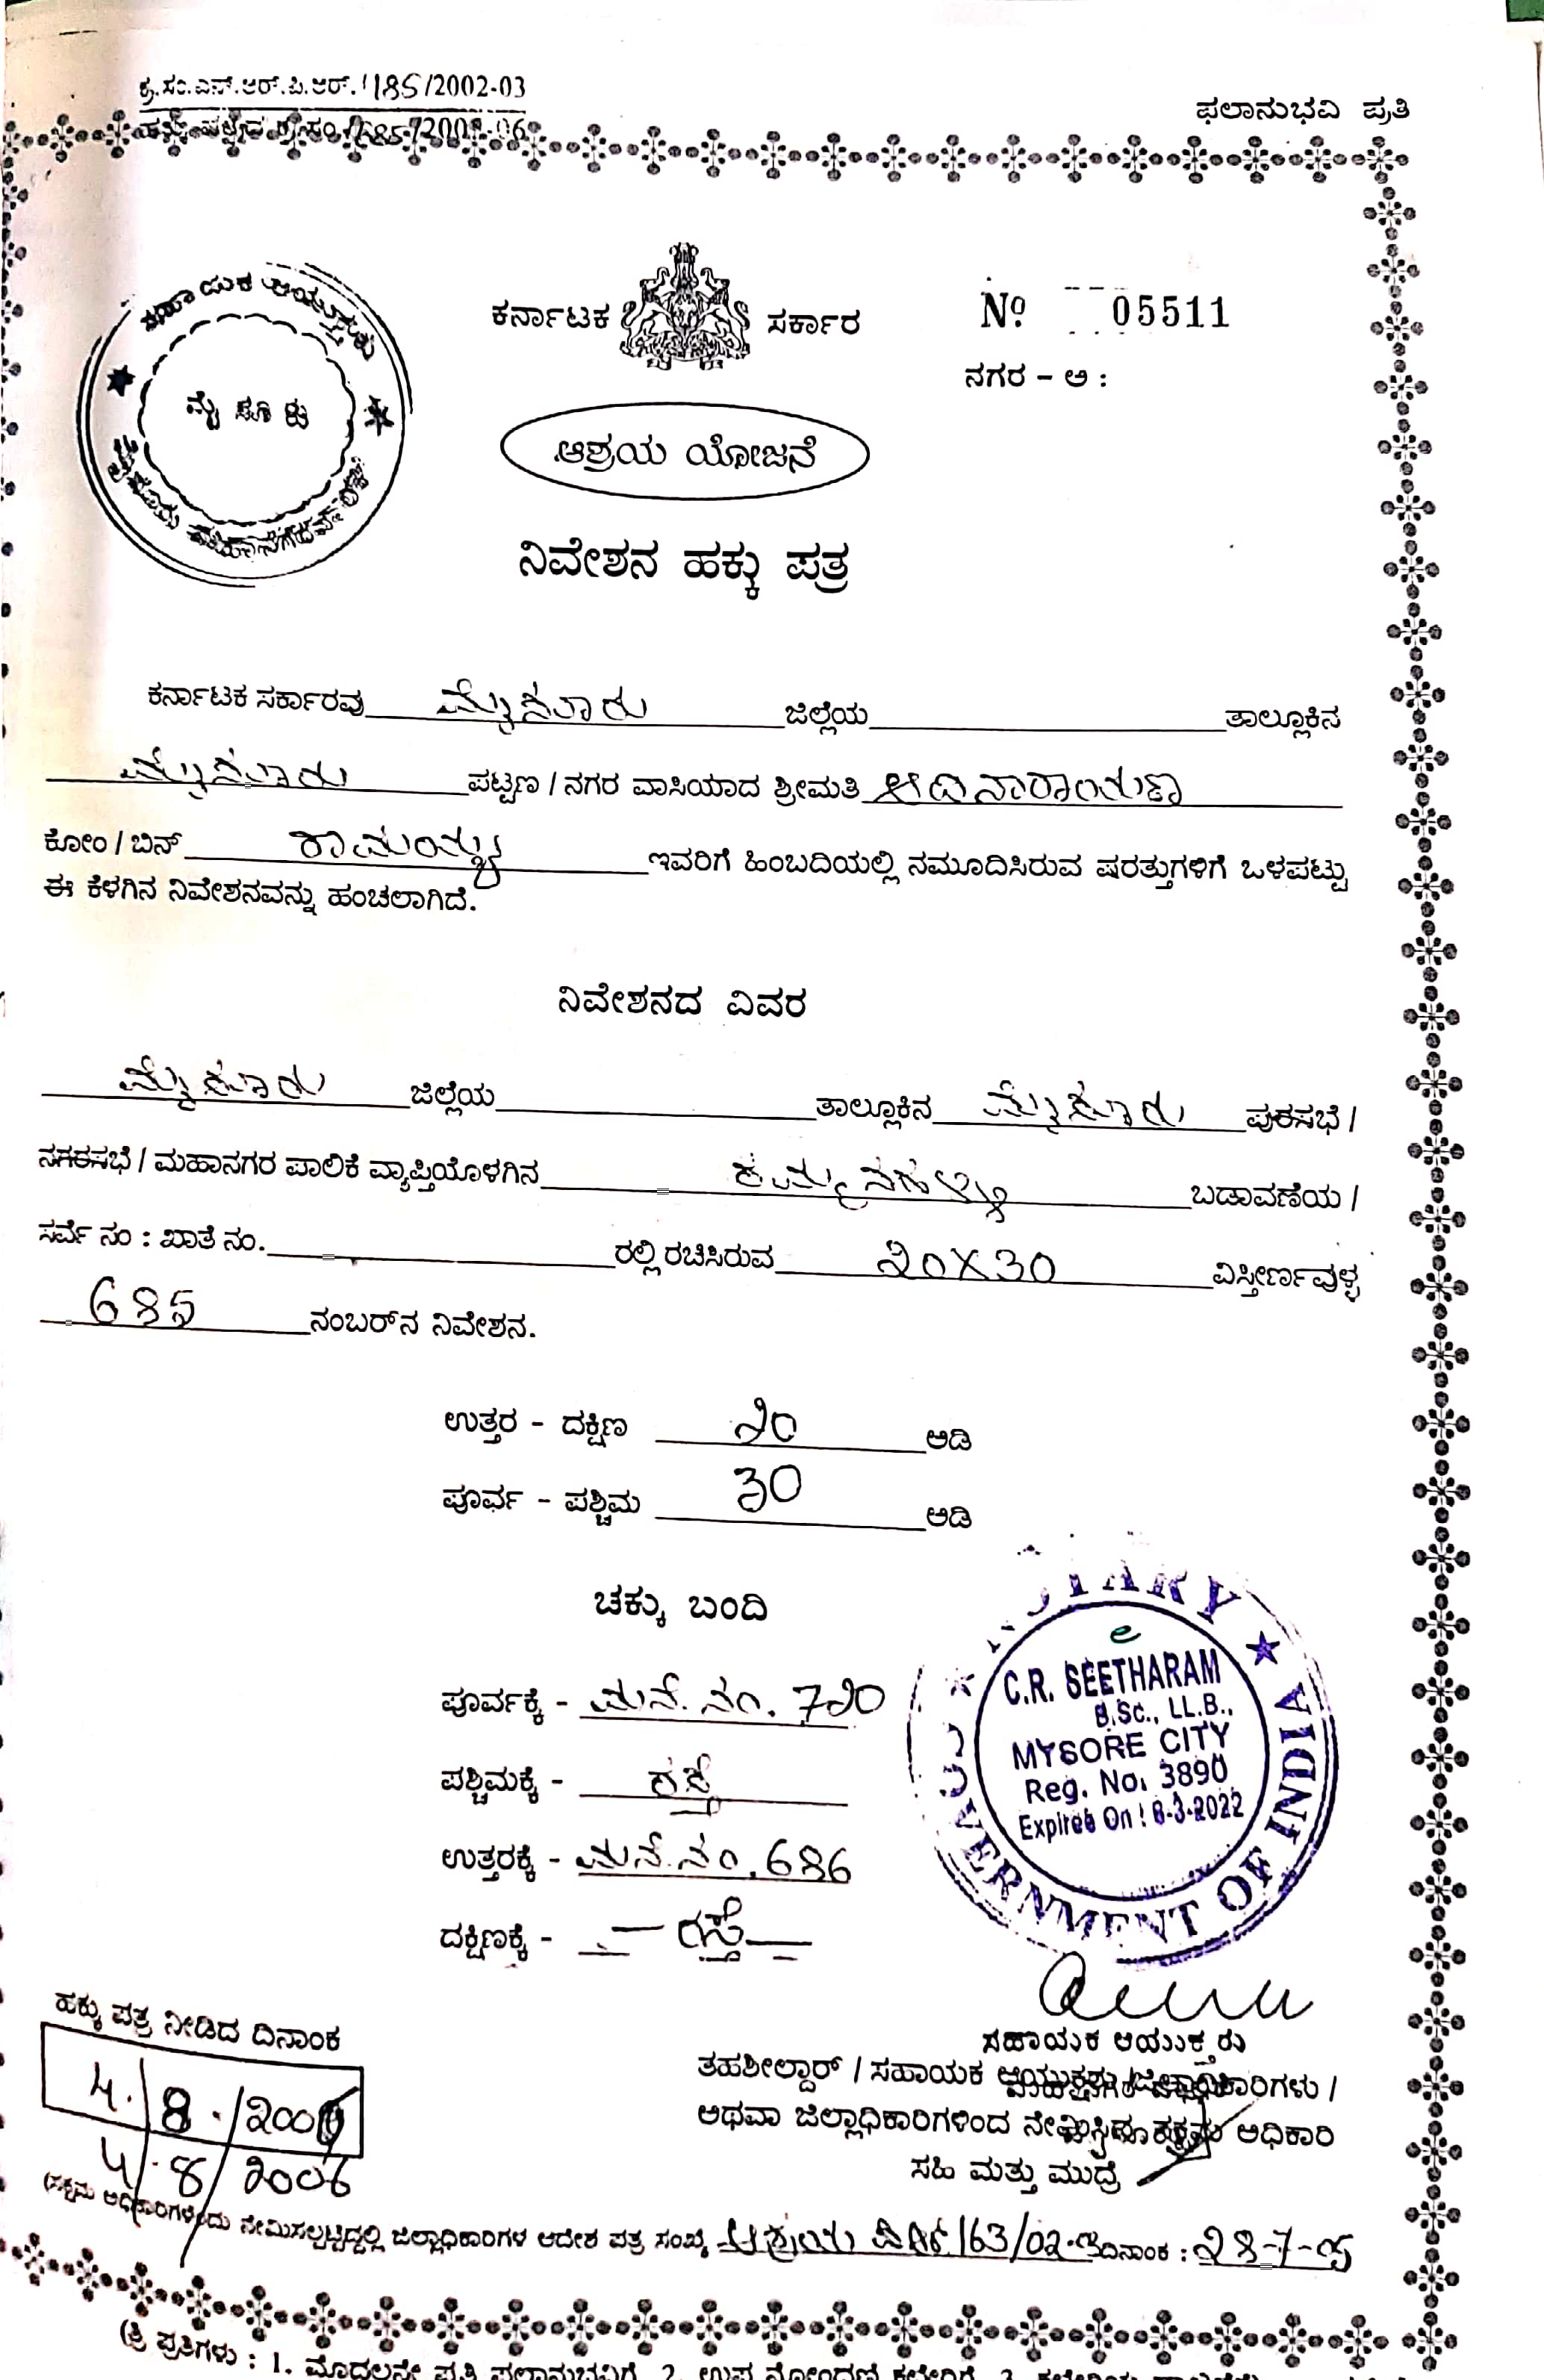 ಕ್ರ.ಸಂ.ಎನ್.ಆರ್.ಪಿ.ಆರ್. 1185/2002-03
ಫಲಾನುಭವಿ ಪ್ರತಿ
ಸಹಾಯಕ ಆಯುಕ್ತರು
ಮೈಸೂರು
ಕರ್ನಾಟಕ ಸರ್ಕಾರ
Nº 05511
ನಗರ - ಅ :
ಆಶ್ರಯ ಯೋಜನೆ
ನಿವೇಶನ ಹಕ್ಕು ಪತ್ರ
ಕರ್ನಾಟಕ ಸರ್ಕಾರವು ಮೈಸೂರು ಜಿಲ್ಲೆಯ ತಾಲ್ಲೂಕಿನ
ಮೈಸೂರು ಪಟ್ಟಣ / ನಗರ ವಾಸಿಯಾದ ಶ್ರೀಮತಿ ಆದಿನಾರಾಯಣ
ಕೋಂ / ಬಿನ್ ರಾಮಯ್ಯ ಇವರಿಗೆ ಹಿಂಬದಿಯಲ್ಲಿ ನಮೂದಿಸಿರುವ ಷರತ್ತುಗಳಿಗೆ ಒಳಪಟ್ಟು
ಈ ಕೆಳಗಿನ ನಿವೇಶನವನ್ನು ಹಂಚಲಾಗಿದೆ.
ನಿವೇಶನದ ವಿವರ
ಮೈಸೂರು ಜಿಲ್ಲೆಯ ತಾಲ್ಲೂಕಿನ ಮೈಸೂರು ಪುರಸಭೆ /
ನಗರಸಭೆ / ಮಹಾನಗರ ಪಾಲಿಕೆ ವ್ಯಾಪ್ತಿಯೊಳಗಿನ ಬಡಾವಣೆಯ /
ಸರ್ವೆ ನಂ : ಖಾತೆ ನಂ. ರಲ್ಲಿ ರಚಿಸಿರುವ ೨೦X30 ವಿಸ್ತೀರ್ಣವುಳ್ಳ
685 ನಂಬರ್‌ನ ನಿವೇಶನ.
ಉತ್ತರ - ದಕ್ಷಿಣ ೨೦ ಅಡಿ
ಪೂರ್ವ - ಪಶ್ಚಿಮ 30 ಅಡಿ
ಚಕ್ಕು ಬಂದಿ
ಪೂರ್ವಕ್ಕೆ - ಮನೆ. ನಂ. 7೨೦
ಪಶ್ಚಿಮಕ್ಕೆ - ರಸ್ತೆ
ಉತ್ತರಕ್ಕೆ - ಮನೆ. ನಂ. 686
ದಕ್ಷಿಣಕ್ಕೆ - ರಸ್ತೆ
NOTARY ★ GOVERNMENT OF INDIA ★
C.R. SEETHARAM
B.Sc., LL.B.,
MYSORE CITY
Reg. No. 3890
Expires On : 8-3-2022
ಹಕ್ಕು ಪತ್ರ ನೀಡಿದ ದಿನಾಂಕ
4/8/2006
4/8/2006
ಸಹಾಯಕ ಆಯುಕ್ತರು
ತಹಶೀಲ್ದಾರ್ / ಸಹಾಯಕ ಆಯುಕ್ತರು / ಜಿಲ್ಲಾಧಿಕಾರಿಗಳು /
ಅಥವಾ ಜಿಲ್ಲಾಧಿಕಾರಿಗಳಿಂದ ನೇಮಿಸಿದ ಸಕ್ಷಮ ಅಧಿಕಾರಿ
ಸಹಿ ಮತ್ತು ಮುದ್ರೆ
(ಸಕ್ಷಮ ಅಧಿಕಾರಿಗಳೆಂದು ನೇಮಿಸಲ್ಪಟ್ಟಿದ್ದಲ್ಲಿ ಜಿಲ್ಲಾಧಿಕಾರಿಗಳ ಆದೇಶ ಪತ್ರ ಸಂಖ್ಯೆ ಆಶ್ರಯ 163/02-03 ದಿನಾಂಕ : ೨8-7-05
(ತ್ರಿ ಪ್ರತಿಗಳು : 1. ಮೊದಲನೇ ಪ್ರತಿ ಫಲಾನುಭವಿಗೆ 2. ಉಪ ನೋಂದಣಿ ಕಛೇರಿಗೆ 3.